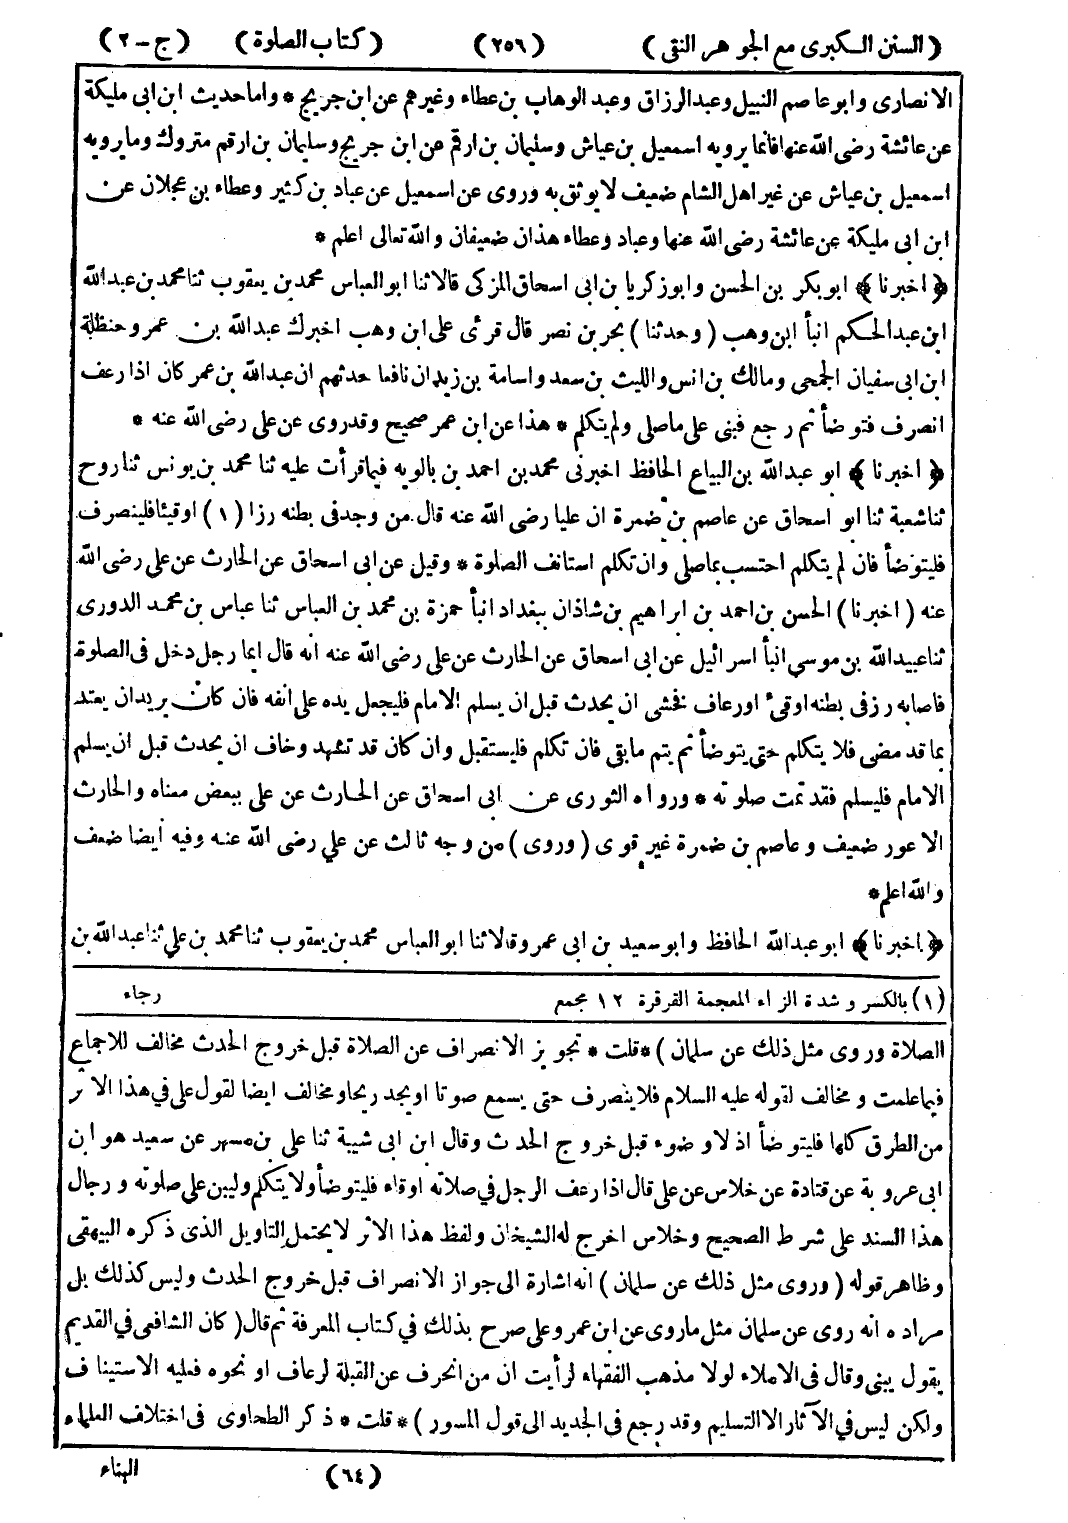 (السنن الكبرى مع الجوهر النقى) (٢٥٦) (كتاب الصلوة) (ج-٢)
الانصارى وابوعاصم النبيل وعبدالرزاق وعبد الوهاب بن عطاء وغيرهم عن ابن جريج * واما حديث ابن ابى مليكة
عن عائشة رضى الله عنها فانما يرويه اسمعيل بن عياش وسليمان بن ارقم عن ابن جريج وسليمان بن ارقم متروك وما يرويه
اسمعيل بن عياش عن غير اهل الشام ضعيف لا يوثق به وروى عن اسمعيل عن عباد بن كثير وعطاء بن عجلان عن
ابن ابى مليكة عن عائشة رضى الله عنها وعباد وعطاء هذان ضعيفان والله تعالى اعلم *
﴿اخبرنا﴾ ابوبكر بن الحسن وابوزكريا بن ابى اسحاق المزكى قالا ثنا ابوالعباس محمد بن يعقوب ثنا محمد بن عبدالله
ابن عبدالحكم انبأ ابن وهب (وحدثنا) بحر بن نصر قال قرأى على ابن وهب اخبرك عبدالله بن عمر وحنظلة
ابن ابى سفيان الجمحى ومالك بن انس والليث بن سعد واسامة بن زيد ان نافعا حدثهم ان عبدالله بن عمر كان اذا رعف
انصرف فتوضأ ثم رجع فبنى على ماصلى ولم يتكلم * هذا عن ابن عمر صحيح وقد روى عن على رضى الله عنه *
﴿اخبرنا﴾ ابو عبدالله بن البياع الحافظ اخبرنى محمد بن احمد بن بالويه فيما قرأت عليه ثنا محمد بن يونس ثنا روح
ثنا شعبة ثنا ابو اسحاق عن عاصم بن ضمرة ان عليا رضى الله عنه قال من وجد فى بطنه رزا (١) اوقيئا فلينصرف
فليتوضأ فان لم يتكلم احتسب بما صلى وان تكلم استانف الصلوة * وقيل عن ابى اسحاق عن الحارث عن على رضى الله
عنه (اخبرنا) الحسن بن احمد بن ابراهيم بن شاذان ببغداد انبأ حمزة بن محمد بن العباس ثنا عباس بن محمد الدورى
ثنا عبيدالله بن موسى انبأ اسرائيل عن ابى اسحاق عن الحارث عن على رضى الله عنه انه قال ايما رجل دخل فى الصلوة
فاصابه رز فى بطنه اوقىء اورعاف فخشى ان يحدث قبل ان يسلم الامام فليجعل يده على انفه فان كان يريدان يعتد
بما قد مضى فلا يتكلم حتى يتوضأ ثم يتم مابقى فان تكلم فليستقبل وان كان قد تشهد وخاف ان يحدث قبل ان يسلم
الامام فليسلم فقد تمت صلوته * ورواه الثورى عن ابى اسحاق عن الحارث عن على ببعض معناه والحارث
الاعور ضعيف وعاصم بن ضمرة غير قوى (وروى) من وجه ثالث عن علي رضى الله عنه وفيه أيضا ضعف
والله اعلم *
﴿اخبرنا﴾ ابوعبدالله الحافظ وابوسعيد بن ابى عمرو قالا ثنا ابوالعباس محمد بن يعقوب ثنا محمد بن علي ثنا عبدالله بن
رجاء
(١) بالكسر وشدة الزاء المعجمة القرقرة ١٢ مجمع
الصلاة وروى مثل ذلك عن سلمان) * قلت * تجويز الانصراف عن الصلاة قبل خروج الحدث مخالف للاجماع
فيما علمت ومخالف لقوله عليه السلام فلا ينصرف حتى يسمع صوتا اويجد ريحا ومخالف ايضا لقول على في هذا الاثر
من الطرق كلها فليتوضأ اذ لا وضوء قبل خروج الحدث وقال ابن ابى شيبة ثنا على بن مسهر عن سعيد هو ابن
ابى عروبة عن قتادة عن خلاس عن على قال اذا رعف الرجل في صلاته اوقاء فليتوضأ ولا يتكلم وليبن على صلوته ورجال
هذا السند على شرط الصحيح وخلاس اخرج له الشيخان ولفظ هذا الاثر لا يحتمل التاويل الذى ذكره البيهقى
وظاهر قوله (وروى مثل ذلك عن سلمان) انه اشارة الى جواز الانصراف قبل خروج الحدث وليس كذلك بل
مراده انه روى عن سلمان مثل ماروى عن ابن عمر وعلى صرح بذلك في كتاب المعرفة ثم قال (كان الشافعى في القديم
يقول يبنى وقال فى الاملاء لولا مذهب الفقهاء لرأيت ان من انحرف عن القبلة لرعاف او نحوه فعليه الاستيناف
ولكن ليس في الآثار الا التسليم وقد رجع فى الجديد الى قول المسور) * قلت * ذكر الطحاوى فى اختلاف العلماء
(٦٤) البناء